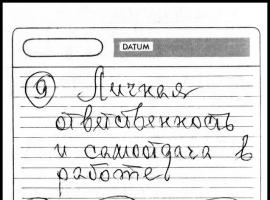 DATUM
9 Личная
ответственность
и самоотдача в
работе